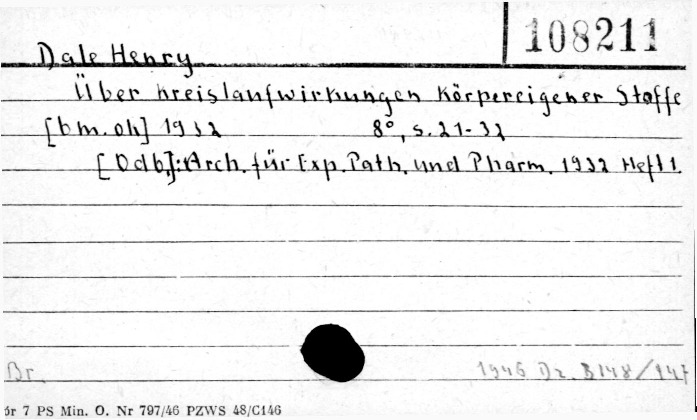 108211
Dale Henry
Über Kreislaufwirkungen Körpereigener Stoffe
[bm. ok] 1932 8°, s. 21-32
[Odb.]: Arch. für Exp. Path. und Pharm. 1932 Heft 1.
Br. 1946 Dz. B148/147
ór 7 PS Min. O. Nr 797/46 PZWS 48/C146